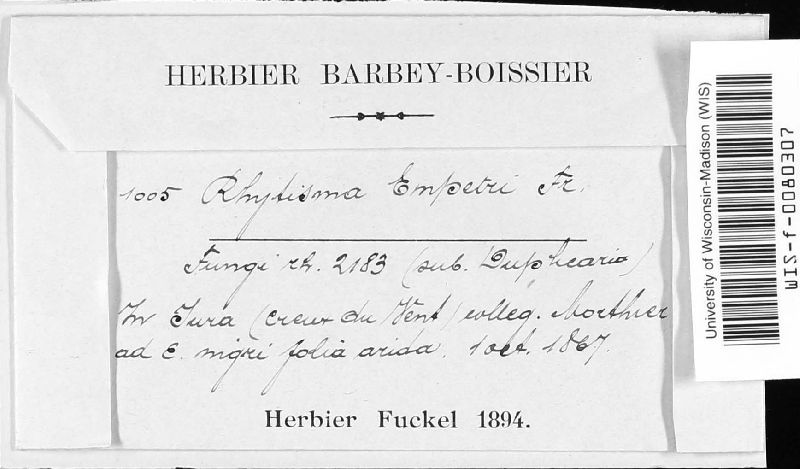 HERBIER BARBEY-BOISSIER
1005 Rhytisma Empetri Fr.
Fungi rh. 2183 (sub. Duplicaria)
In Jura (creux du Vent) colleg. Morthier
ad E. nigri folia arida. 1 oct. 1867.
Herbier Fuckel 1894.
University of Wisconsin-Madison (WIS)
WIS-f-0080307